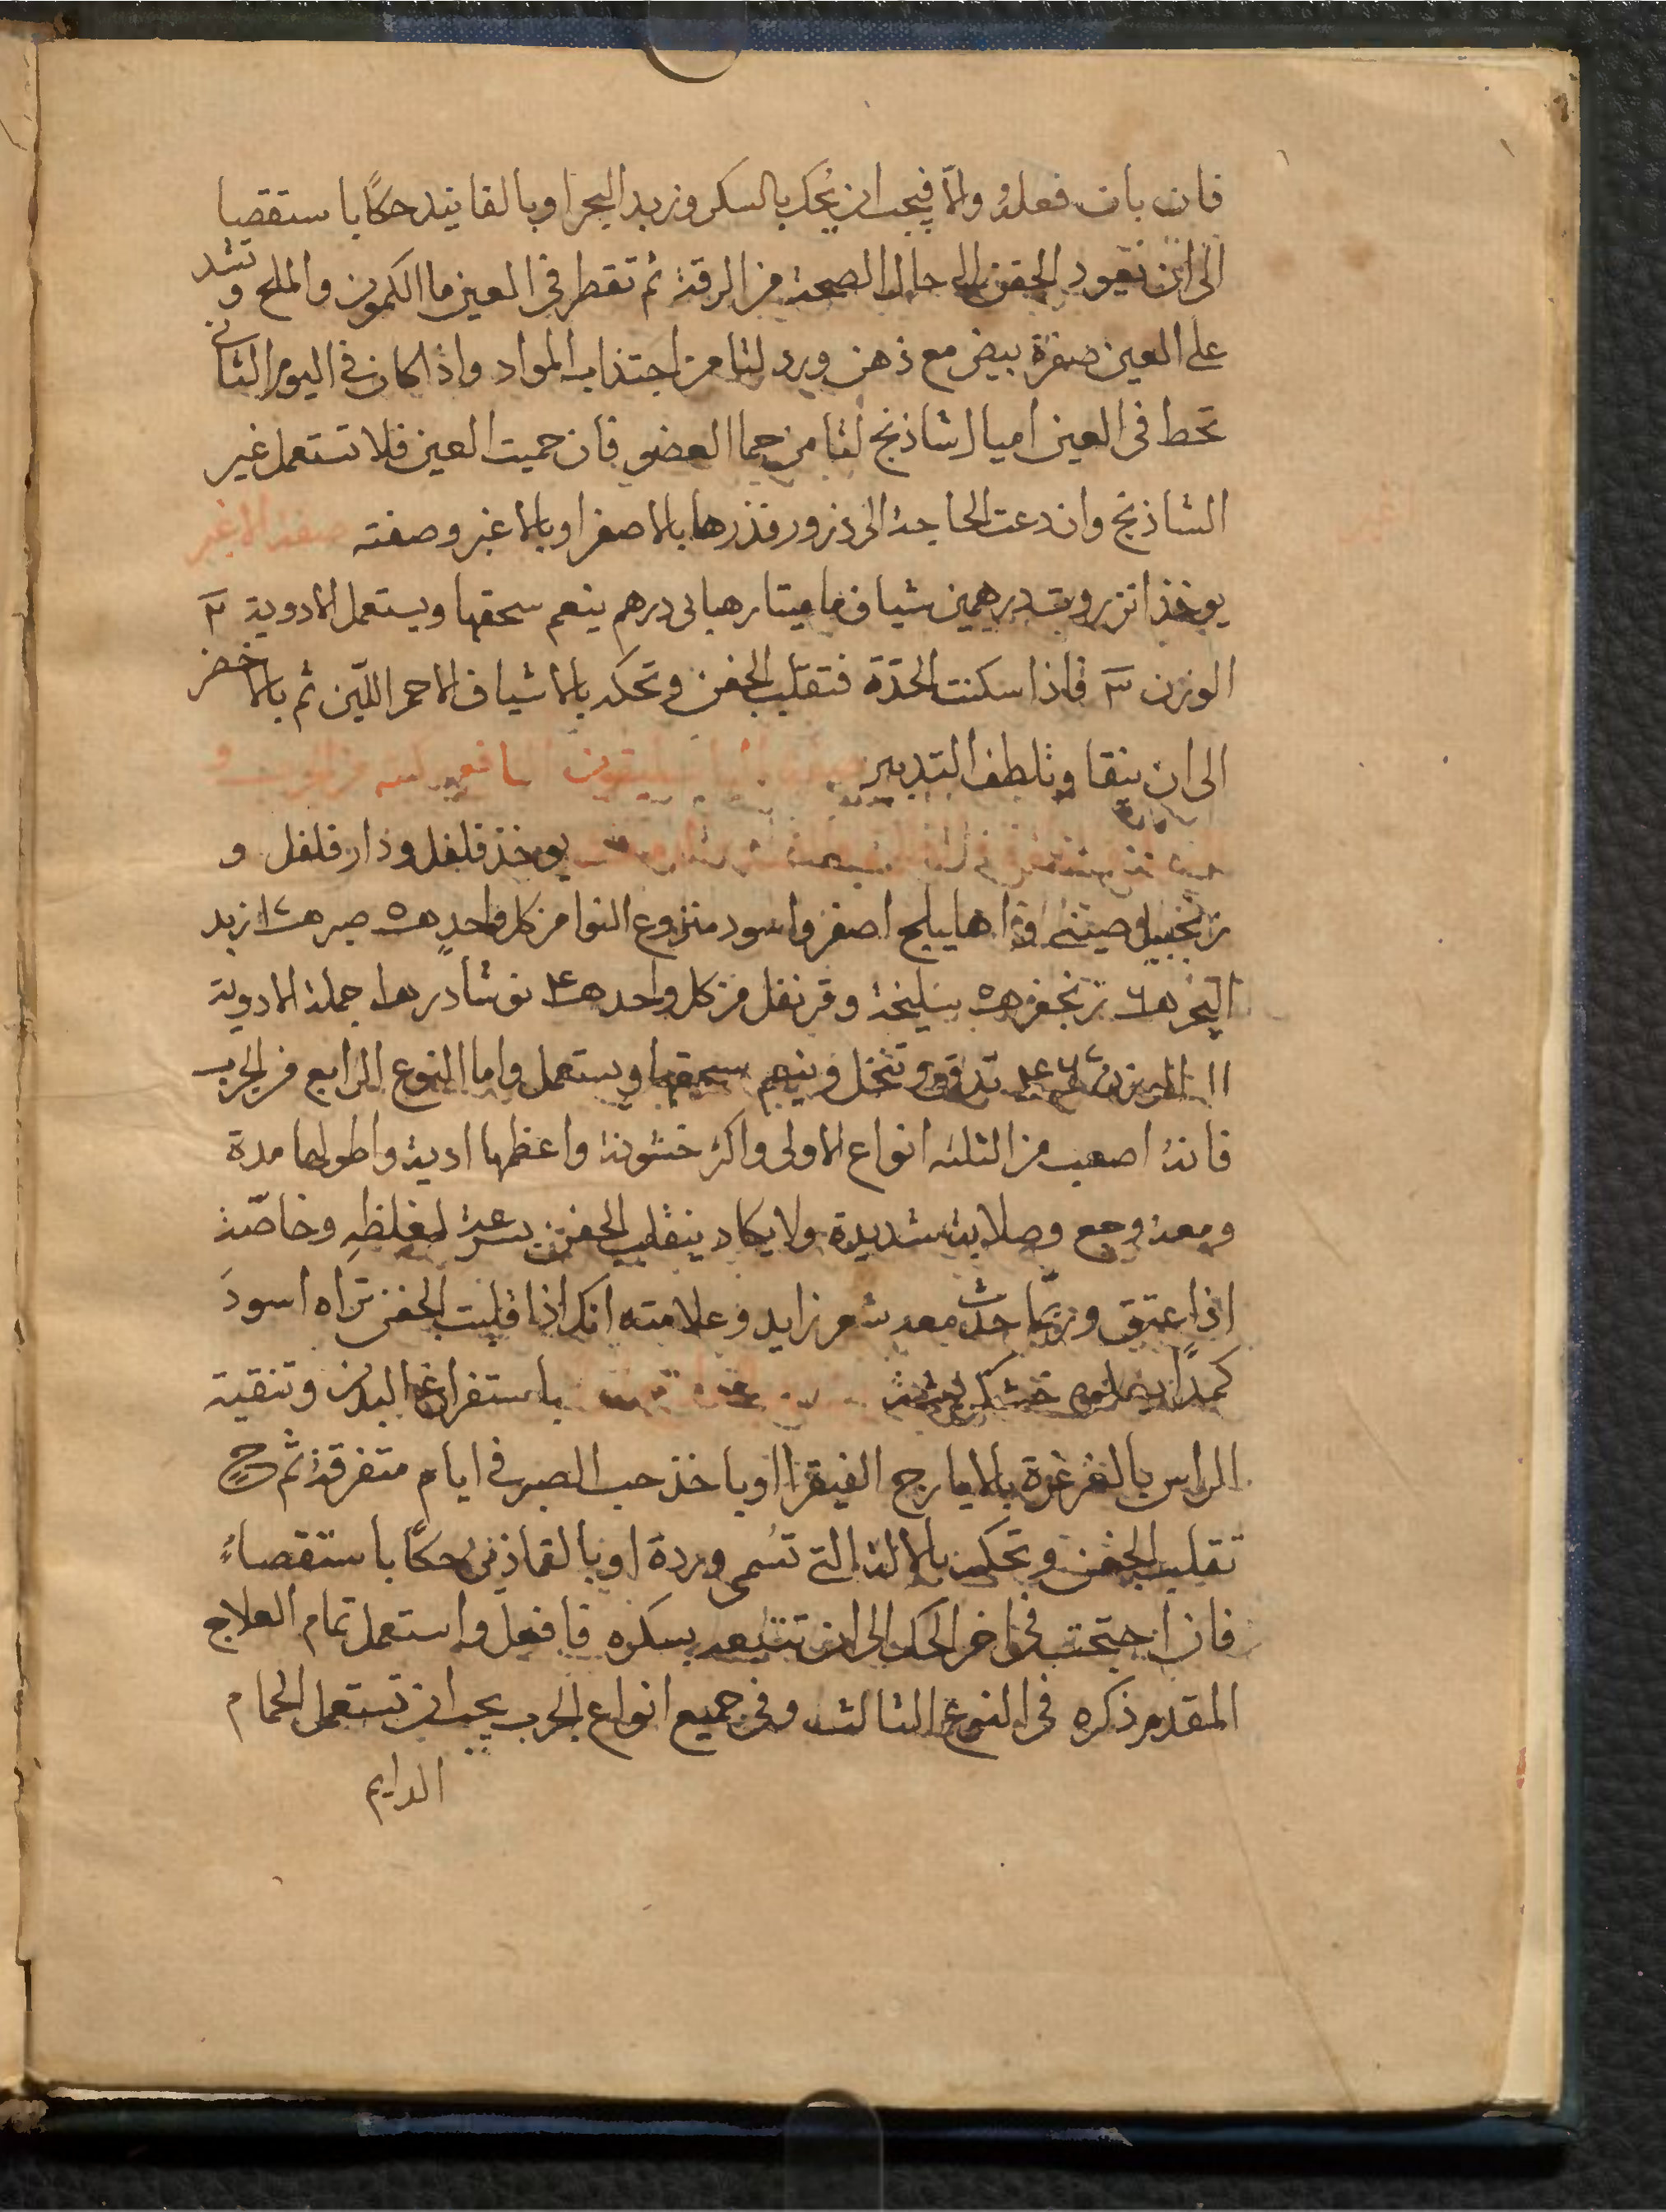 فان بان فعله والا فيجب ان يحك بالسكر وزبد البحر او بالفانيد حكًا باستقصا
الى ان تعود الجفن الى حال الصحة من الرقة ثم تقطر في العين ما الكمون والملح وتشد
على العين صفرة بيض مع دهن ورد لتامن اجتذاب المواد واذا كان في اليوم الثاني
تحط في العين اميال شاذنج لتامن حما العضو فان حميت العين فلا تستعمل غير
الشاذنج وان دعت الحاجة الى ذرور فذرها بالاصفر او بالاغبر وصفته صفة الاغبر
يوخذ انزروت درهمين شياف ماميتا رهبانى درهم ينعم سحقها ويستعمل الادوية ٣
الوزن ٣ فاذا سكنت الحدّة فتقلب الجفن وتحكه بالاشياف الاحمر اللّين ثم بالاخضر
الى ان ينقا وتلطف التدبير
يوخذ فلفل ودارفلفل و
زنجبيل صينى وا هليلج اصفر واسود منزوع النوا من كل واحدٍ صبر زبد
البحر زنجفر سليخة وقرنفل من كل واحد نوشادر جملة الادوية
١١ الوزن تدق وتنخل وينعم سحقها ويستعمل واما النوع الرابع من الجرب
فانهُ اصعب من الثلثه انواع الاولى واكثر خشونة واعظمها ادية واطولها مدة
ومعه وجع وصلابة شديدة ولا يكاد ينقلب الجفن بسرعة لغلظهِ وخاصّة
اذا عتق وربّما حدث معه شعر زايد وعلامته انك اذا قلبت الجفن تراه اسودَ
كمدًا يعلوه خشكريشة باستفراغ البدن وتنقية
الراس بالغرغرة بالايارج الفيقرا او باخذ حب الصبر في ايام متفرقة ثم ح
تقلب الجفن وتحكه بالالة التي تسمى وردة او بالقماذين حكًا باستقصاءٍ
فان احتجت في اخر الحك الى ان تتبعه بسكره فافعل واستعمل تمام العلاج
المقدم ذكره في النوع الثالث وفي جميع انواع الجرب يجب ان تستعمل الحمام
الدايم